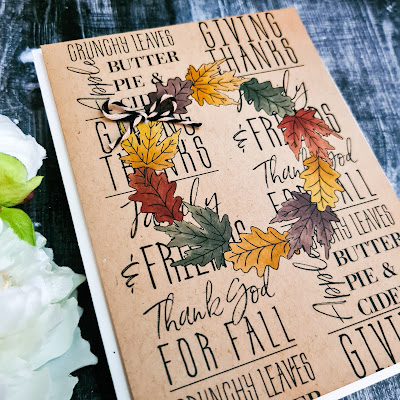 CRUNCHY LEAVES
Apple
BUTTER
PIE &
CIDER
GIVING
THANKS
Family
& FRIENDS
Thank God
FOR FALL
GIVING
THANKS
Family
& FRIENDS
Thank God
FOR FALL
CRUNCHY LEAVES
CRUNCHY LEAVES
Apple
BUTTER
PIE &
CIDER
GIVING